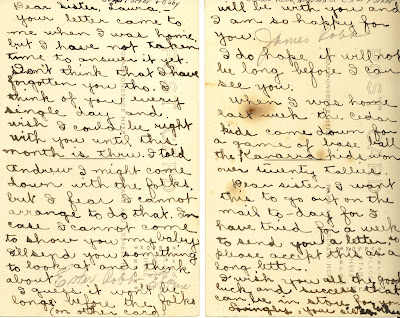 Dear Sister, Laura:
Your letter came to
me when I was home
but I have not taken
time to answer it yet.
Don't think that I have
forgotten you tho. I
think of you every
single day and
wish I could be right
with you until this
month is thru. I told
Andrew I might come
down with the folks,
but I fear I cannot
arrange to do that. In
case I cannot come
to show you my baby
I'll send you something
to look at and think
about.
I guess it won't be
long before the folks
(on other card)
will be with you and
I am so happy for
you.
James
I do hope it will not
be long before I can
see you.
When I was home
last week the Cedar
kids came down for
a game of base ball
the Panaria kids won
over twenty tallies
Dear sister I want
this to go out on the
mail to-day for I
have tried for a week
to send you a letter, so
please accept this as a
long letter.
I wish you all the good
luck and success that
can be in store for you
Lovingly, your sister